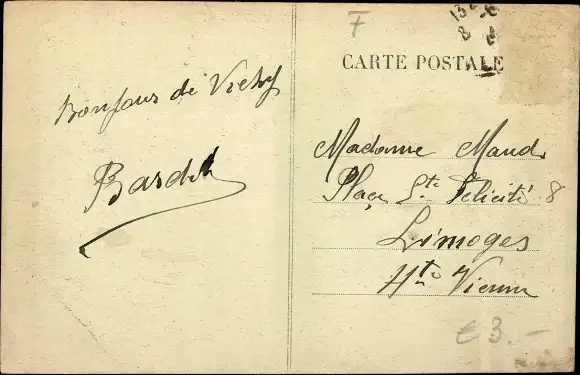 F
CARTE POSTALE
Bonjour de Vichy
Madame Maud
Place Ste Félicité 8
Limoges
Hte Vienne
€ 3.-